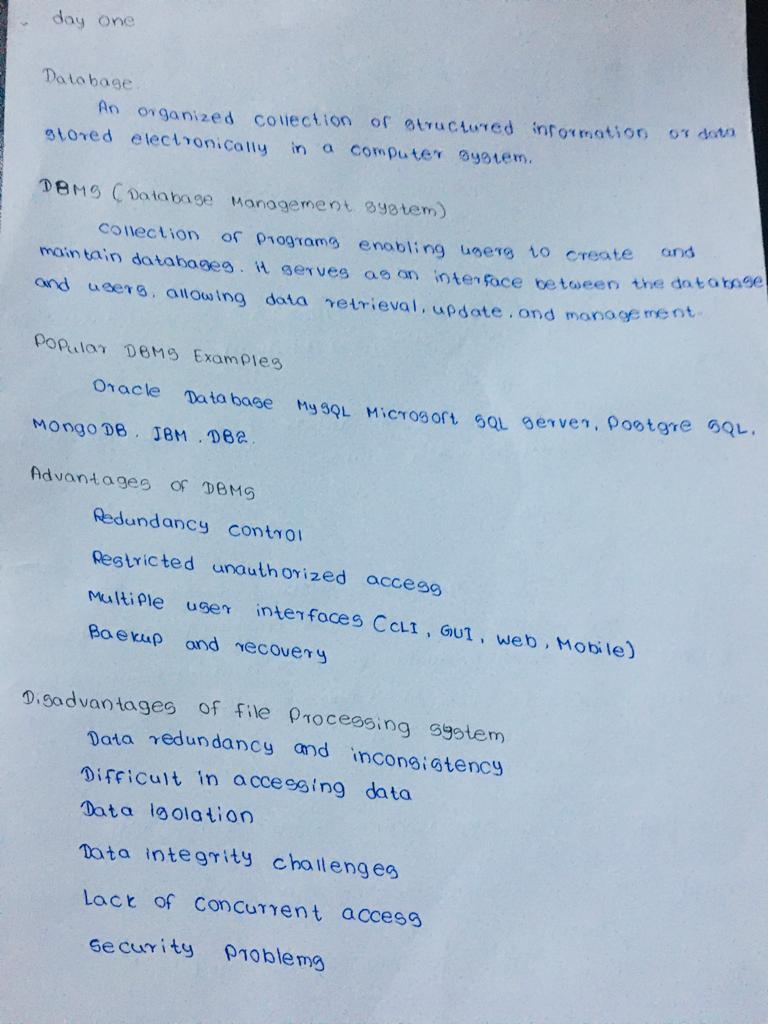 day one
Database
An organized collection of structured information or data
stored electronically in a computer system.
DBMS (Database Management system)
collection of programs enabling users to create and
maintain databases. it serves as an interface between the database
and users, allowing data retrieval, update, and management.
Popular DBMS Examples
Oracle Database MySQL Microsoft SQL server, Postgre SQL,
MongoDB, IBM, DB2.
Advantages of DBMS
Redundancy control
Restricted unauthorized access
Multiple user interfaces (CLI, GUI, web, Mobile)
Backup and recovery
Disadvantages of file Processing system
Data redundancy and inconsistency
Difficult in accessing data
Data Isolation
Data integrity challenges
Lack of concurrent access
security problems